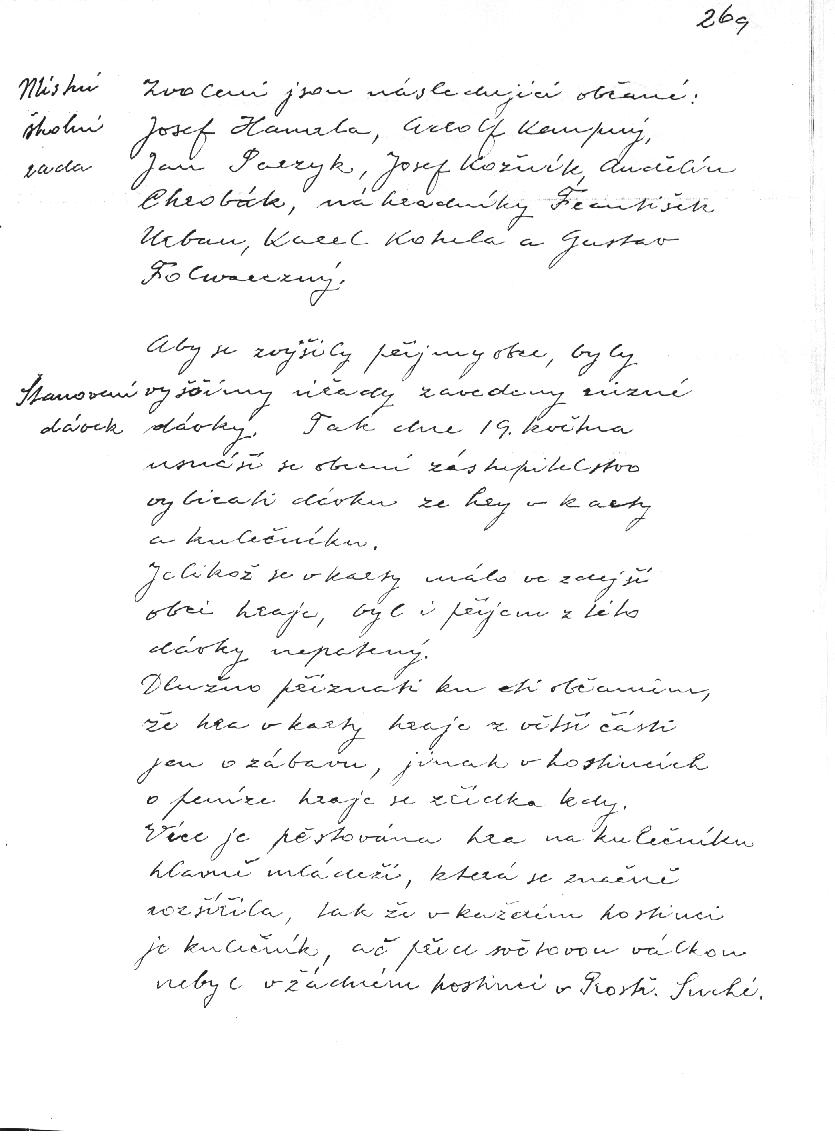 269
Místní
školní
rada
Zvoleni jsou následující občané:
Josef Hamrla, Adolf Kempný,
Jan Paczyk, Josef Kožník, Andělín
Chrobák, náhradníky František
Urban, Karel Kohula a Gustav
Folwarczný.
Stanovení
dávek
Aby se zvýšily příjmy obce, byly
vyššímy úřady zavedeny různé
dávky. Tak dne 19. května
usnáší se obecní zastupitelstvo
vybírati dávku ze hry v karty
a kulečníku.
Jelikož se v karty málo ve zdejší
obci hraje, byl i příjem z této
dávky nepatrný.
Dlužno přiznati ku cti občanům,
že hra v karty hraje z větší části
jen o zábavu, jinak v hostincích
o peníze hraje se zřídka kdy.
Více je pěstována hra na kulečníku
hlavně mládeží, která se značně
rozšířila, tak že v každém hostinci
je kulečník, ač před světovou válkou
nebyl v žádném hostinci v Prostř. Suché.